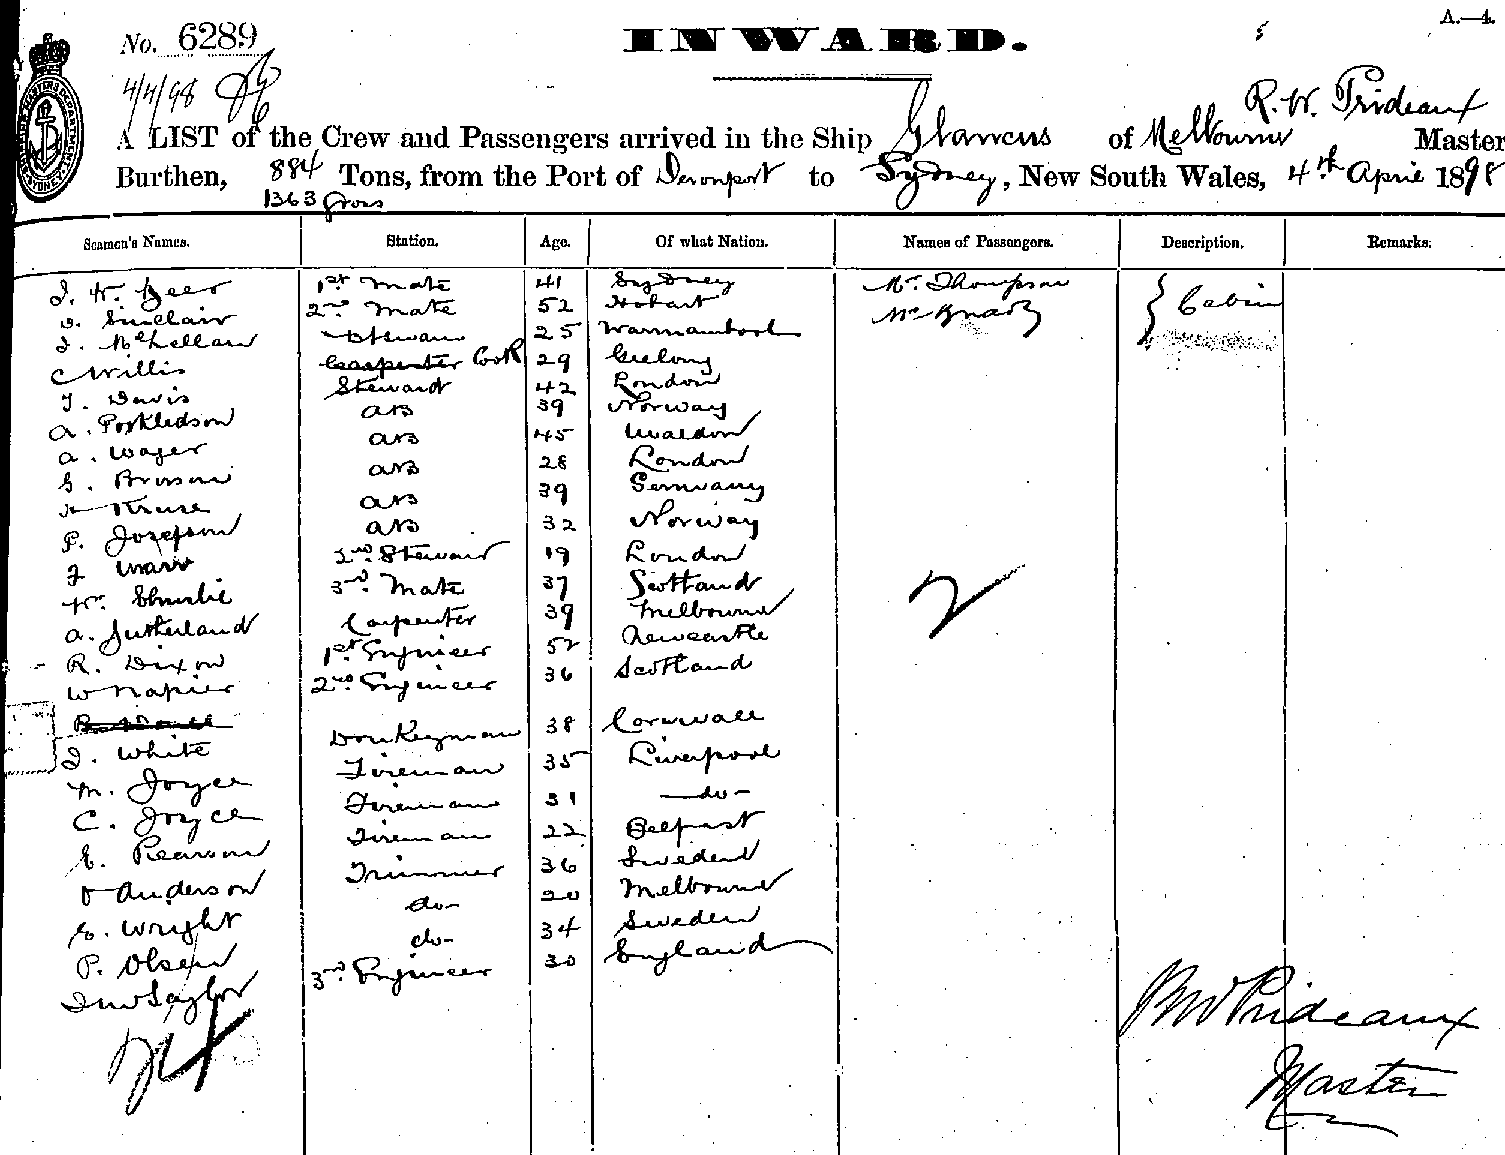 A.—4.
No. 6289
INWARD.
4/4/98
R. W. Prideaux
A LIST of the Crew and Passengers arrived in the Ship Glaucus of Melbourne Master
Burthen, 884 Tons, from the Port of Devonport to Sydney, New South Wales, 4th April 1898
1363 Gross
Seamen's Names. Station. Age. Of what Nation. Names of Passengers. Description. Remarks.
1st Mate 41 Sydney Mr. Thompson Cabin
D. Sinclair 2nd Mate 52 Hobart Mr
J. McLellan 25 Warrnambool
C Willis Carpenter Cook 29 Geelong
J. Davis Steward 42 London
A. AB 39 Norway
A. Wager AB 45
AB 28 London
Kruse AB 39 Germany
P. Josefson AB 32 Norway
2nd Steward 19 London
3rd Mate 37 Scotland
A. Sutherland Carpenter 39 Melbourne
R. Dixon 1st Engineer 52 Newcastle
W Napier 2nd Engineer 36 Scotland
J. White Donkeyman 38 Cornwall
M. Joyce Fireman 35 Liverpool
C. Joyce Fireman 31 —do—
E. Pearson Fireman 22 Belfast
Anderson Trimmer 36 Sweden
E. Wright do— 20 Melbourne
P. Olsen do— 34 Sweden
Taylor 3rd Engineer 30 England
2
24
RW Prideaux
Master